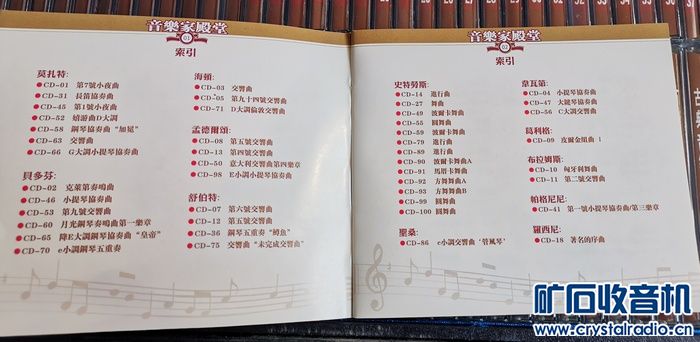 音樂家殿堂
03
索引
莫扎特:
CD-01 第7號小夜曲
CD-31 長笛協奏曲
CD-45 第1號小夜曲
CD-52 嬉游曲D大調
CD-58 鋼琴協奏曲“加冕”
CD-63 交響曲
CD-66 G大調小提琴協奏曲
貝多芬:
CD-02 克萊第奏鳴曲
CD-46 小提琴協奏曲
CD-53 第九號交響曲
CD-60 月光鋼琴奏鳴曲第一樂章
CD-65 降E大調鋼琴協奏曲“皇帝”
CD-70 e小調鋼琴五重奏
海頓:
CD-03 交響曲
CD-05 第九十四號交響曲
CD-71 D大調倫敦交響曲
孟德爾頌:
CD-08 第五號交響曲
CD-13 第四號交響曲
CD-50 意大利交響曲第四樂章
CD-98 E小調小提琴協奏曲
舒伯特:
CD-07 第六號交響曲
CD-12 第五號交響曲
CD-36 鋼琴五重奏“鱒魚”
CD-75 交響曲“未完成交響曲”
音樂家殿堂
03
索引
史特勞斯:
CD-14 進行曲
CD-27 舞曲
CD-49 波爾卡舞曲
CD-55 圓舞曲
CD-59 波爾卡舞曲
CD-79 進行曲
CD-89 進行曲
CD-90 波爾卡舞曲A
CD-91 馬厝卡舞曲
CD-92 方舞曲A
CD-93 方舞曲B
CD-99 圓舞曲
CD-100 圓舞曲
聖桑:
CD-86 c小調交響曲‘管風琴’
韋瓦第:
CD-04 小提琴協奏曲
CD-47 大鍵琴協奏曲
CD-56 C大調交響曲
葛利格:
CD-09 皮爾金組曲 1
布拉姆斯:
CD-10 匈牙利舞曲
CD-11 第二號交響曲
帕格尼尼:
CD-41 第一號小提琴協奏曲/第三樂章
羅西尼:
CD-18 著名的序曲
矿石收音机
www.crystalradio.cn